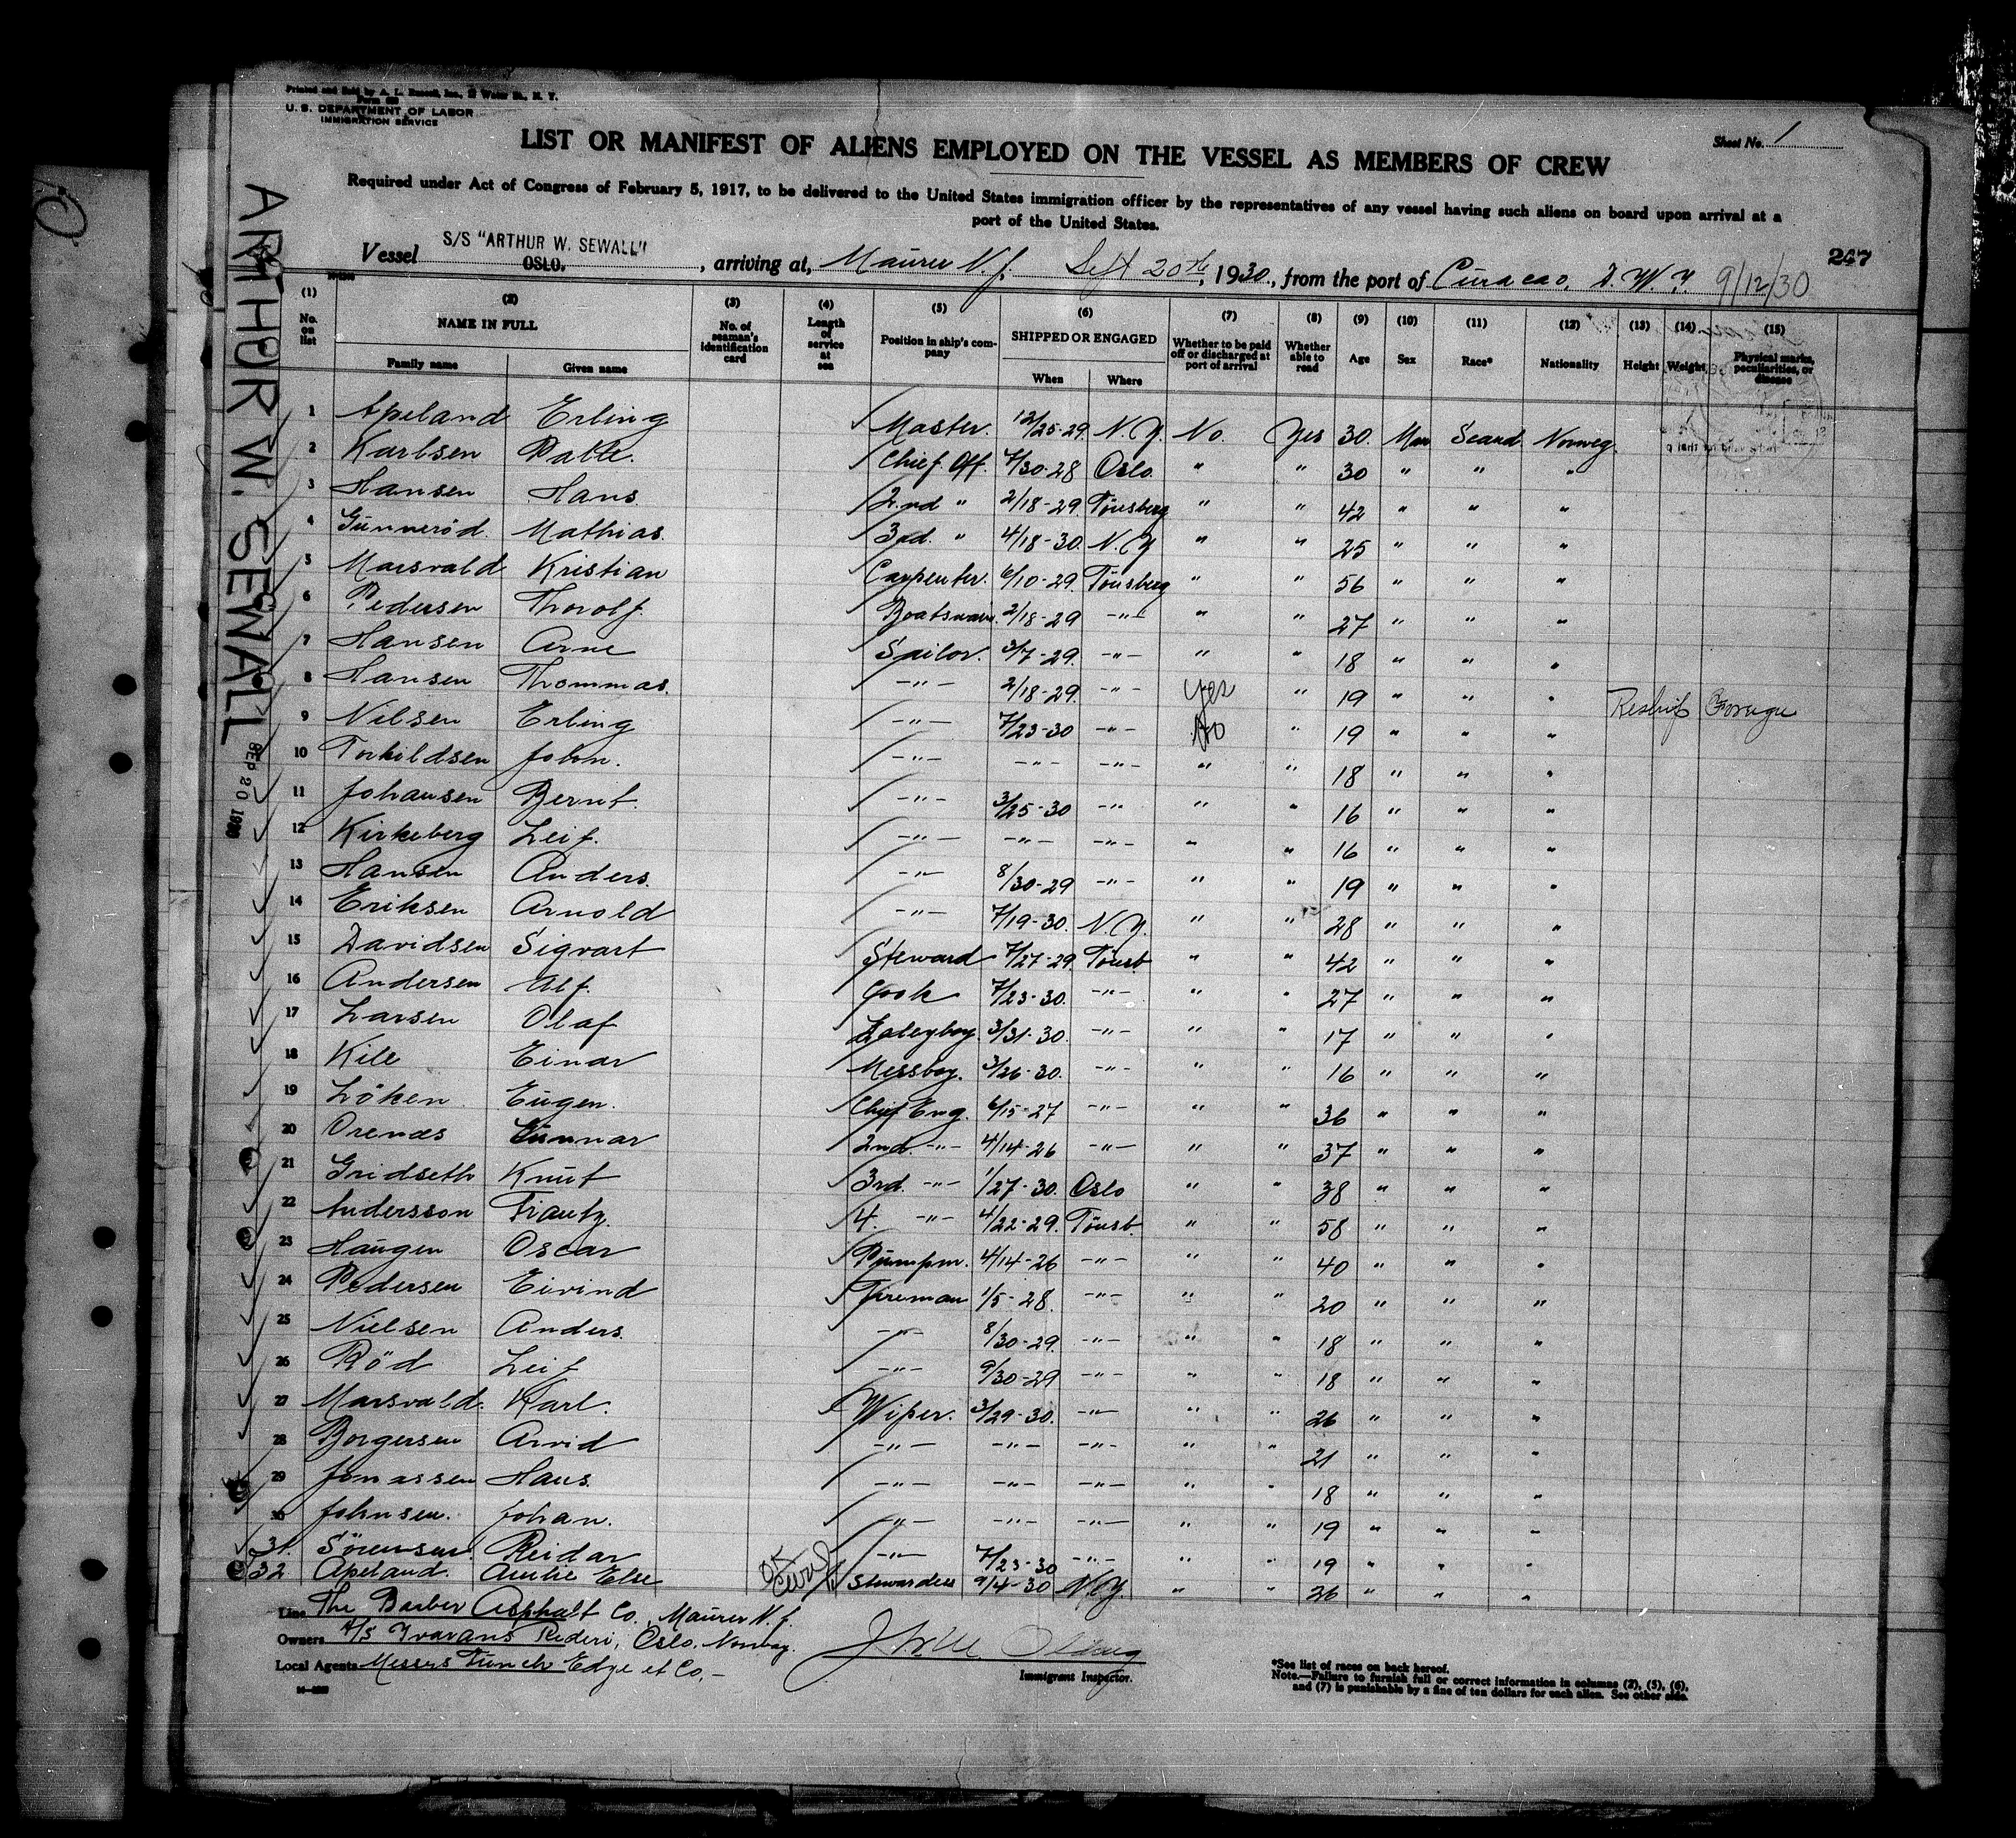 Printed and Sold by A. L. Russell, Inc., Water St., N. Y.
U. S. DEPARTMENT OF LABOR
IMMIGRATION SERVICE
Sheet No. 1
LIST OR MANIFEST OF ALIENS EMPLOYED ON THE VESSEL AS MEMBERS OF CREW
Required under Act of Congress of February 5, 1917, to be delivered to the United States immigration officer by the representatives of any vessel having such aliens on board upon arrival at a
port of the United States.
247
Vessel S/S "ARTHUR W. SEWALL" OSLO, arriving at, Maurer N.J. Sept 20th, 1930, from the port of Curacao, D.W.I. 9/12/30
ARTHUR W. SEWALL SEP 20 1930
(1) (2) (3) (4) (5) (6) (7) (8) (9) (10) (11) (12) (13) (14) (15)
No. on list NAME IN FULL No. of seaman's identification card Length of service at sea Position in ship's company SHIPPED OR ENGAGED Whether to be paid off or discharged at port of arrival Whether able to read Age Sex Race* Nationality Height Weight Physical marks, peculiarities, or disease
Family name Given name When Where
1 Apeland Erling Master. 12/25-29 N.Y. No. Yes 30 Man Scand. Norweg.
2 Karlsen Palle. Chief Off. 7/30-28 Oslo " " 30 " " "
3 Hansen Hans. 2nd " 2/18-29 Tönsberg " " 42 " " "
4 Gunneröd. Mathias. 3rd. " 4/18-30. N.Y " " 25 " " "
5 Marsvald Kristian Carpenter. 6/10-29. Tönsberg " " 56 " " "
6 Pedersen Thorolf. Boatswain. 2/18-29 -"- " " 27 " " "
7 Hansen Arne Sailor. 3/7-29. -"- " " 18 " " "
8 Hansen Thommas. -"- 2/18-29. -"- yes " 19 " " " Reship Foreign
9 Nilsen Erling -"- 7/23-30 -"- No " 19 " " "
10 Torkildsen John. -"- -"- -"- " " 18 " " "
11 Johansen Bernt. -"- 3/25-30 -"- " " 16 " " "
12 Kirkeberg Leif. -"- -"- -"- " " 16 " " "
13 Hansen Anders. -"- 8/30-29 -"- " " 19 " " "
14 Eriksen Arnold -"- 7/19-30. N.Y. " " 28 " " "
15 Davidsen Sigvart Steward 7/27-29. Tönsb " " 42 " " "
16 Andersen Alf. Cook 7/23-30. -"- " " 27 " " "
17 Larsen Olaf 3/31-30. -"- " " 17 " " "
18 Kile Einar Messboy. 3/26-30. -"- " " 16 " " "
19 Löken Eugen. Chief Eng. 6/15-27 -"- " " 36 " " "
20 Orenæs Gunnar 2nd. -"- 4/14-26 -"- " " 37 " " "
21 Gridseth Knut 3rd. -"- 1/27-30. Oslo " " 38 " " "
22 Andersson Frantz. 4. -"- 4/22-29. Tönsb. " " 58 " " "
23 Haugen Oscar Pumpm. 4/14-26 -"- " " 40 " " "
24 Pedersen Eivind Fireman 1/5-28. -"- " " 20 " " "
25 Nielsen Anders. -"- 8/30-29. -"- " " 18 " " "
26 Röd Leif -"- 9/30-29 -"- " " 18 " " "
27 Marsvald. Karl. Wiper. 3/29-30. -"- " " 26 " " "
28 Borgersen Arvid -"- -"- -"- " " 21 " " "
29 Jonassen Hans. -"- -"- -"- " " 18 " " "
30 Johnsen. Johan. -"- -"- -"- " " 19 " " "
31. Sörensen. Reidar -"- 7/23-30 -"- " " 19 " " "
32 Apeland. Else Stewardess 9/4-30 N.Y. " " 26 " " "
Line The Barber Asphalt Co., Maurer N.J.
Owners A/S Ivarans Rederi, Oslo, Norway.
Local Agents Messrs Funch Edye et Co-
Immigrant Inspector.
*See list of races on back hereof.
Note.—Failure to furnish full or correct information in columns (2), (5), (6),
and (7) is punishable by a fine of ten dollars for each alien. See other side.